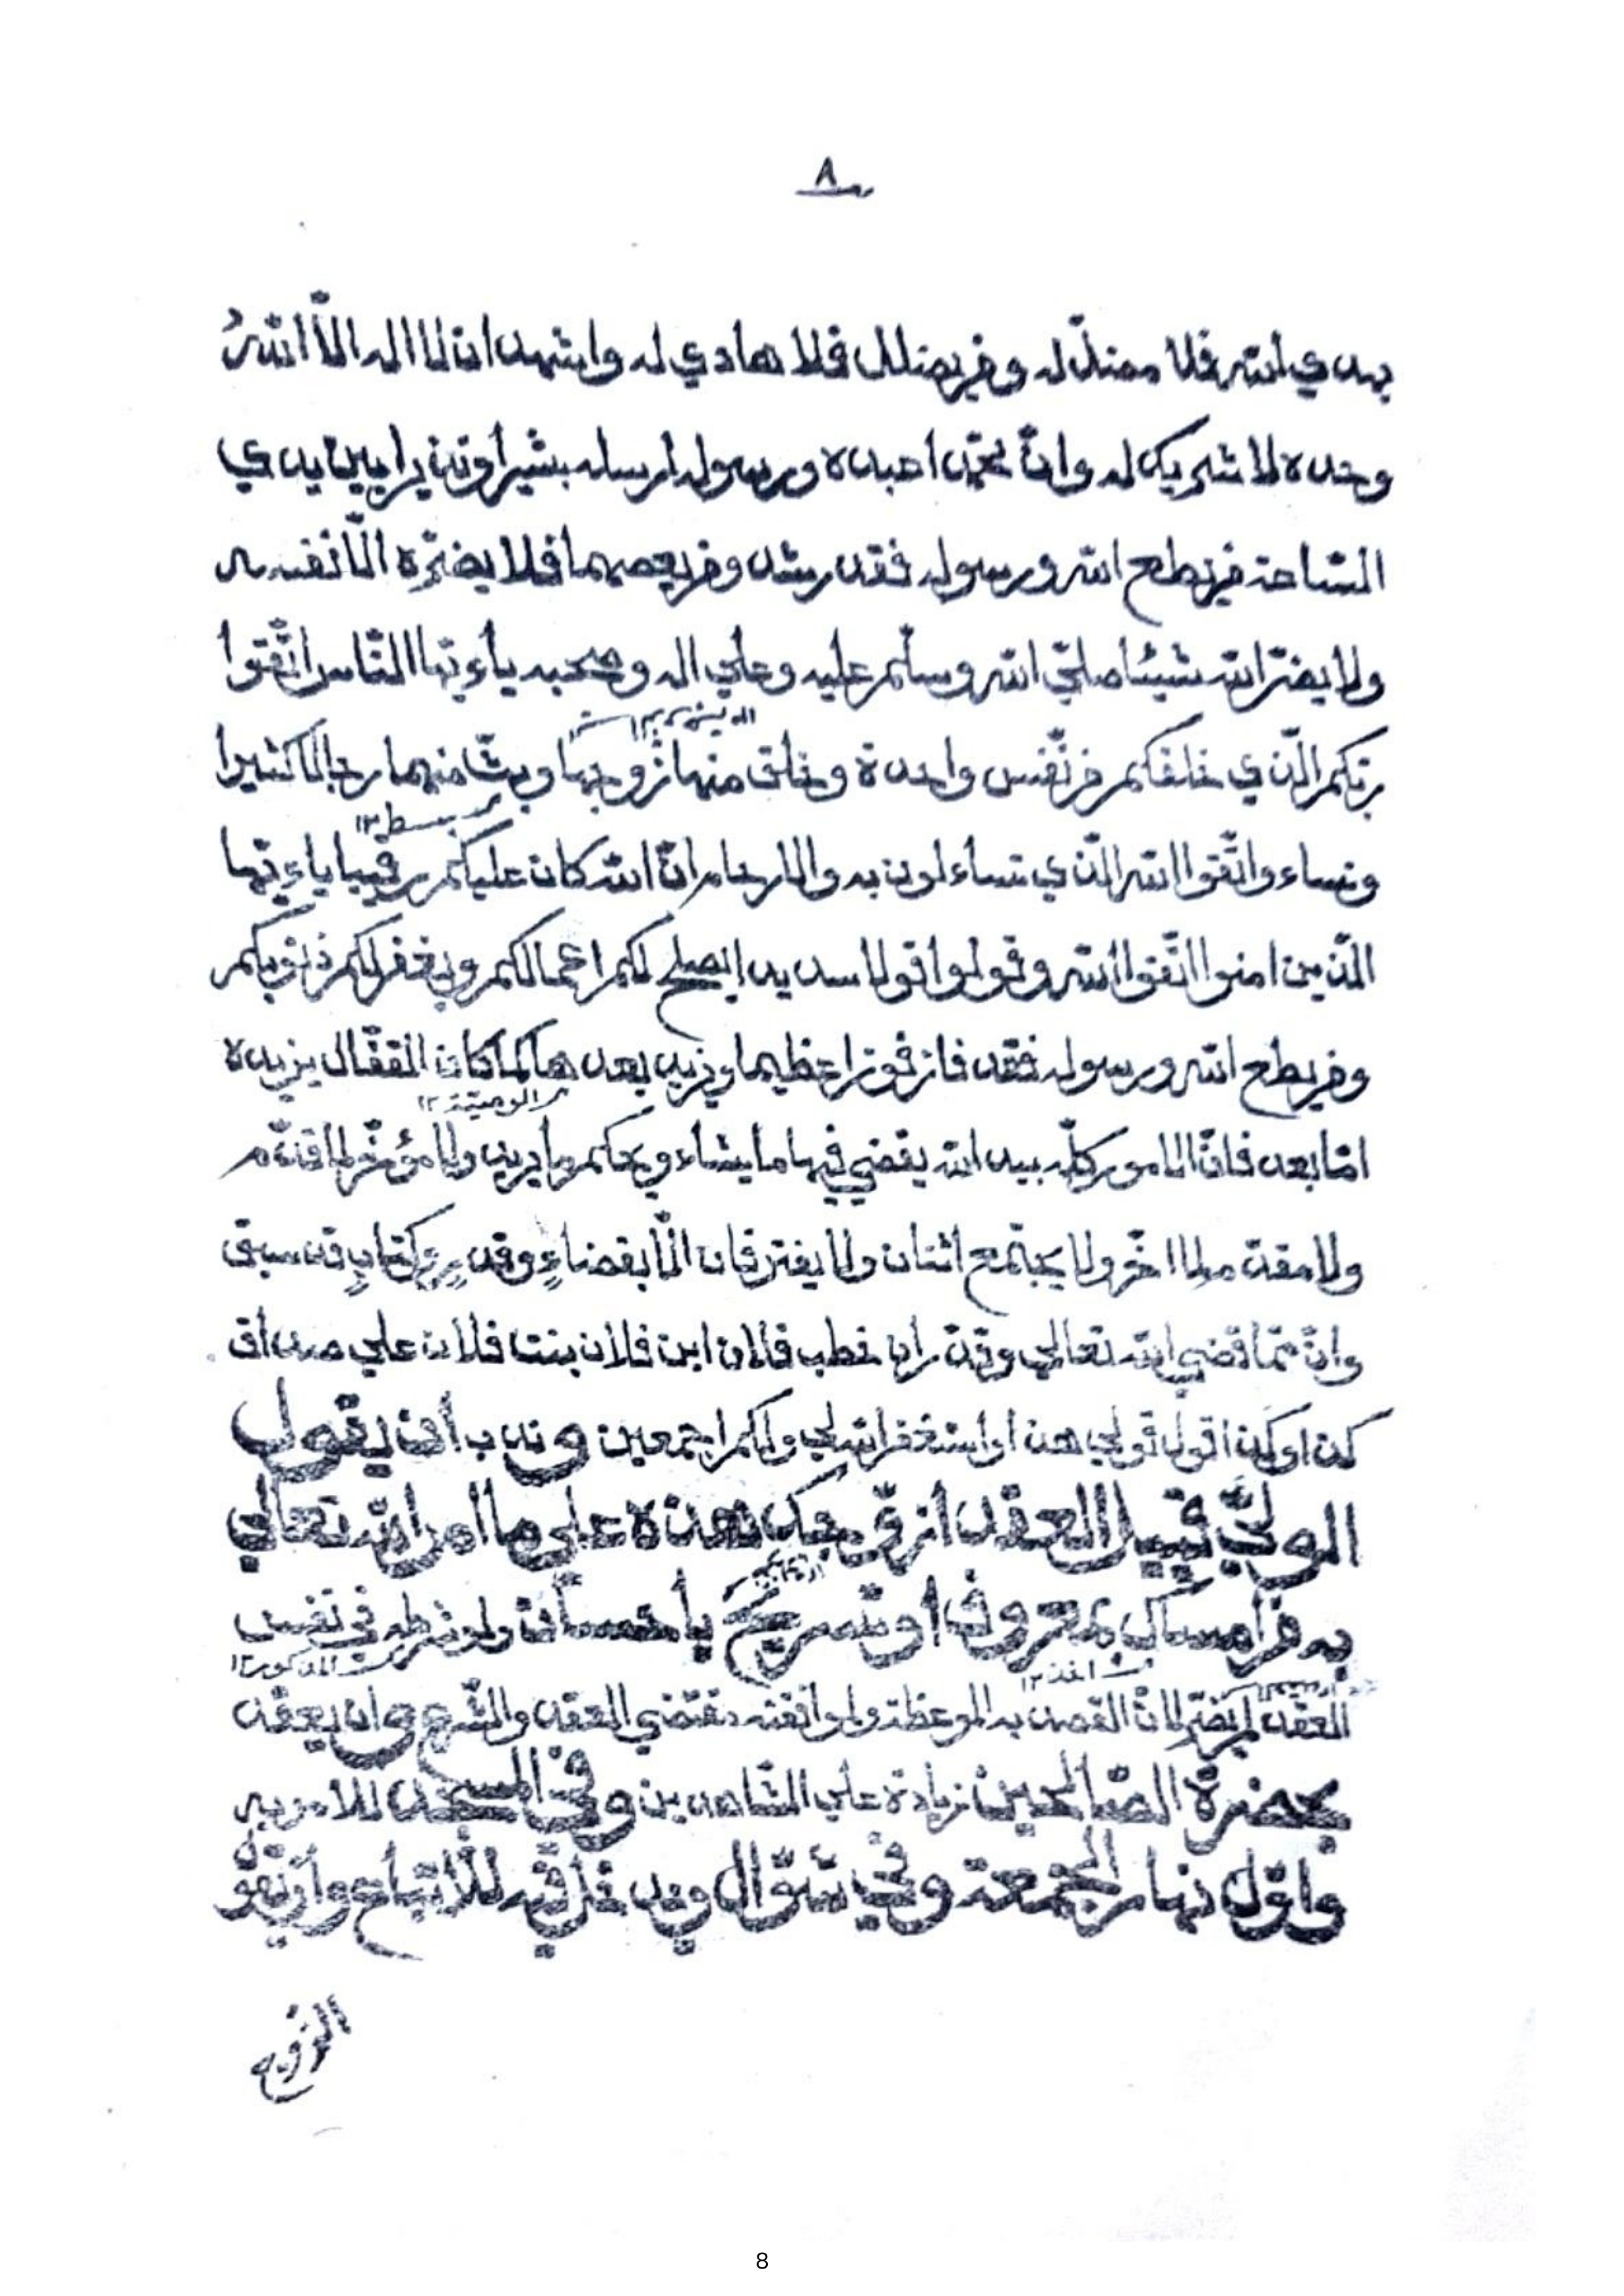 ٨
يهدي الله فلا مضلّ له ومن يضلل فلا هادي له واشهد ان لا اله الّا اللهُ
وحده لا شريك له وانّ محمّدا عبده ورسوله ارسله بشيرا ونذيرا بين يدي
السّاعة من يطع الله ورسوله فقد رشد ومن يعصهما فلا يضرّه الّا نفسه
ولا يضرّ الله شيئا صلّى الله وسلّم عليه وعلي اله وصحبه ياءيّها النّاس اتّقوا
ربّكم الّذي خلقكم من نّفس واحدة وخلق منها زوجها وبثّ منهما رجالا كثيرا
بسط ١٢
ونساء واتّقوا الله الّذي تساءلون به والارحام انّ الله كان عليكم رقيبا ياءيّها
الّذين امنوا اتّقوا الله وقولوا قولا سديدا يصلح لكم اعمالكم ويغفر لكم ذنوبكم
ومن يطع الله ورسوله فقد فاز فوزا عظيما وزيد بعدها ما كان القفّال يزيده
الوصيّة ١٢
امّا بعد فانّ الامور كلّه بيد الله يقضي فيها ما يشاء ويحكم ما يريد ولا مؤخّر لما قدّم
ولا مقدّم لما اخّر ولا يجتمع اثنان ولا يفترقان الّا بقضاءٍ وقدرٍ وكتابٍ قد سبق
وانّ ممّا قضي الله تعالي وقدّر ان خطب فلان ابن فلان بنت فلان علي صداق
كذا وكذا اقول قولي هذا واستغفر الله لي ولكم اجمعين وندب ان يقول
الوليّ قبيل العقد ازوّجك هذه علي ما امر الله تعالي
به من امساك بمعروف او تسريح باحسان ولو شرطه في نفس
المذكور ١٢
العقد لم يضرّ لانّ القصد به الموعظة ولموافقته مقتضي العقد والشّرع وان يعقد
بحضرة الصّالحين زيادة علي الشّاهدين وفي المسجد للامر به
واوّل نهار الجمعة وفي شوّال ويدخل فيه للاتّباع وان يّقول
الزّوج
8